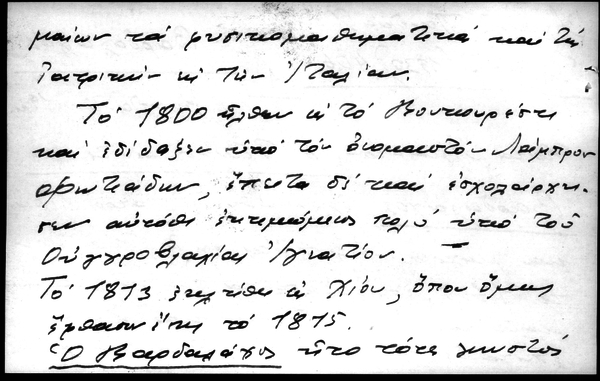 μαίων τά φυσικομαθηματικά καί τήν
Ἰατρικήν εἰς τήν Ἰταλίαν.
Τό 1800 ἦλθεν εἰς τό Βουκουρέστι
καί ἐδίδαξεν ὑπό τόν ὀνομαστόν Λάμπρον
Φωτιάδην, ἔπειτα δέ καί ἐσχολάρχη-
σεν αὐτόθι ἐκτιμώμενος πολύ ὑπό τοῦ
Οὐγγροβλαχίας Ἰγνατίου. —
Τό 1813 ἐκλήθη εἰς Χίον, ὅπου ὅμως
ἔφθασεν εἰς τό 1815.
Ὁ Βαρδαλάχος ἦτο τότε γνωστός